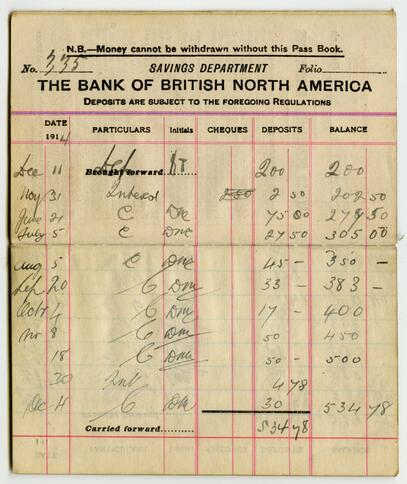 N.B.—Money cannot be withdrawn without this Pass Book.
No. 335 SAVINGS DEPARTMENT Folio
THE BANK OF BRITISH NORTH AMERICA
DEPOSITS ARE SUBJECT TO THE FOREGOING REGULATIONS
DATE 1914 PARTICULARS Initials CHEQUES DEPOSITS BALANCE
Dec 11 Brought forward 200 200
31 Interest 250 2 50 202 50
June 21 C 75 00 277 50
July 5 C 27 50 305 00
Aug 5 C 45 — 350 —
Sep 20 C 33 — 383 —
Octr 4 C 17 — 400
Nv 8 C 50 450
18 C 50 — 500
30 Int 4 78
Dec 4 C 30 534 78
Carried forward 534 78